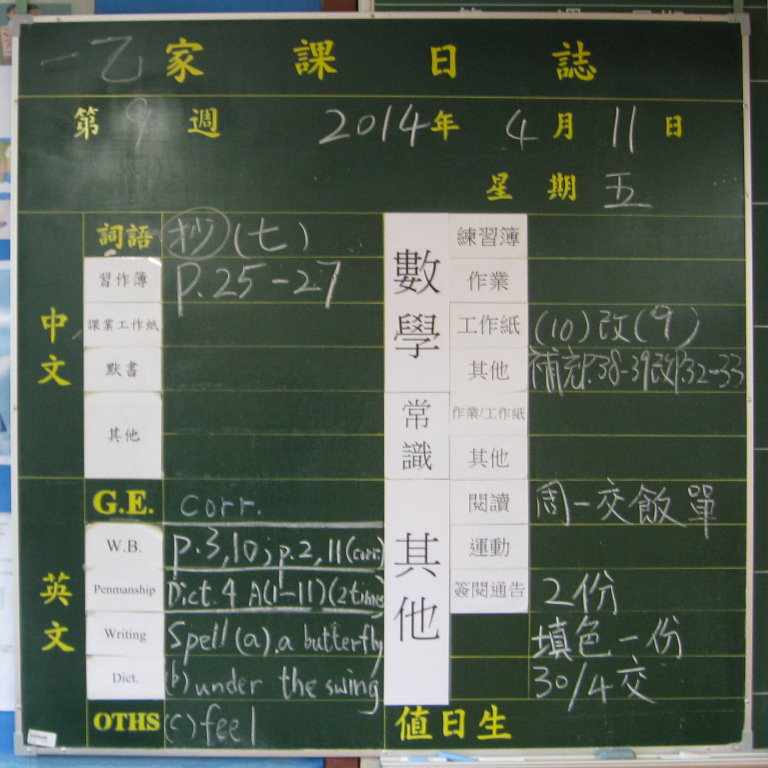 一乙家課日誌
第9週 2014年4月11日
星期五
中文
詞語 抄(七)
習作簿 P.25-27
課業工作紙
默書
其他
英文
G.E. corr.
W.B. p.3,10; p.2,11(corr.)
Penmanship Dict. 4 A(1-11)(2times)
Writing Spell (a). a butterfly
Dict. (b) under the swing
OTHS (c) feel
數學
練習簿
作業
工作紙 (10)改(9)
其他 補充P.38-39改P.32-33
常識
作業/工作紙
其他
其他
閱讀 周一交飯單
運動
簽閱通告 2份
填色一份
30/4交
值日生